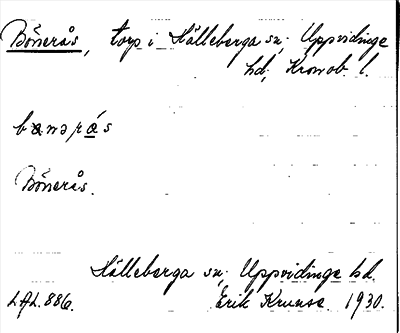 Bönerås, torp i Hälleberga sn; Uppvidinge
hd; Kronob. l.
bɵnərås
Bönerås.
Hälleberga sn; Uppvidinge hd.
LAL. 886. Erik Kruuse. 1930.